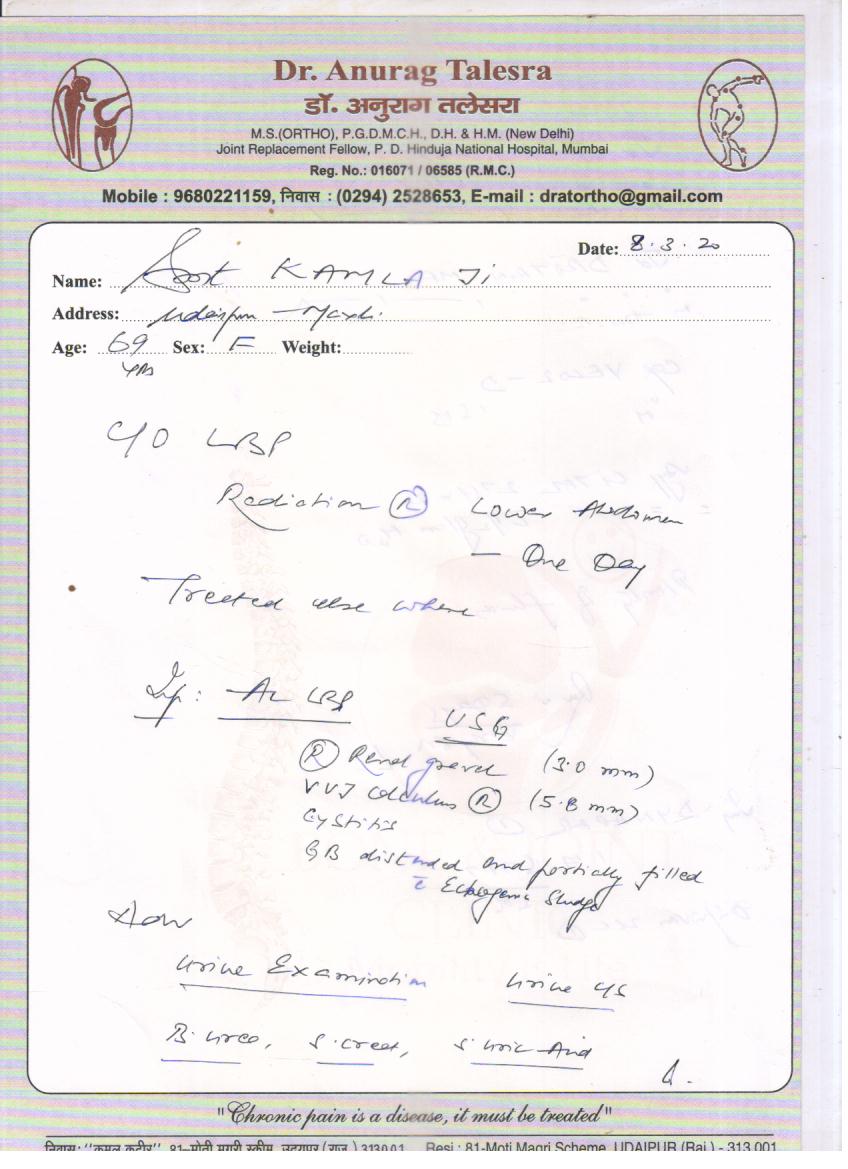 Dr. Anurag Talesra
डॉ. अनुराग तलेसरा
M.S.(ORTHO), P.G.D.M.C.H., D.H. & H.M. (New Delhi)
Joint Replacement Fellow, P. D. Hinduja National Hospital, Mumbai
Reg. No.: 016071 / 06585 (R.M.C.)
Mobile : 9680221159, निवास : (0294) 2528653, E-mail : dratortho@gmail.com
Date: 8.3.20
Name: KAMLA Ji
Address: Udaipur
Age: 69 yrs Sex: F Weight:
C/O LBP
Radiation R Lower Abdomen
— One Day
Treated else where
Imp: Ac LBP
USG
R Renal gravel (3.0 mm)
VUJ calculus R (5.8 mm)
Cystitis
GB distended and partially filled
c̄ Echogenic Sludge
Adv
Urine Examination Urine C/S
B. Urea, S. Creat, S. Uric Acid
"Chronic pain is a disease, it must be treated"
निवास: "कमल कुटीर", 81-मोती मगरी स्कीम, उदयपुर (राज.) 313001 Resi : 81-Moti Magri Scheme, UDAIPUR (Raj.) - 313 001